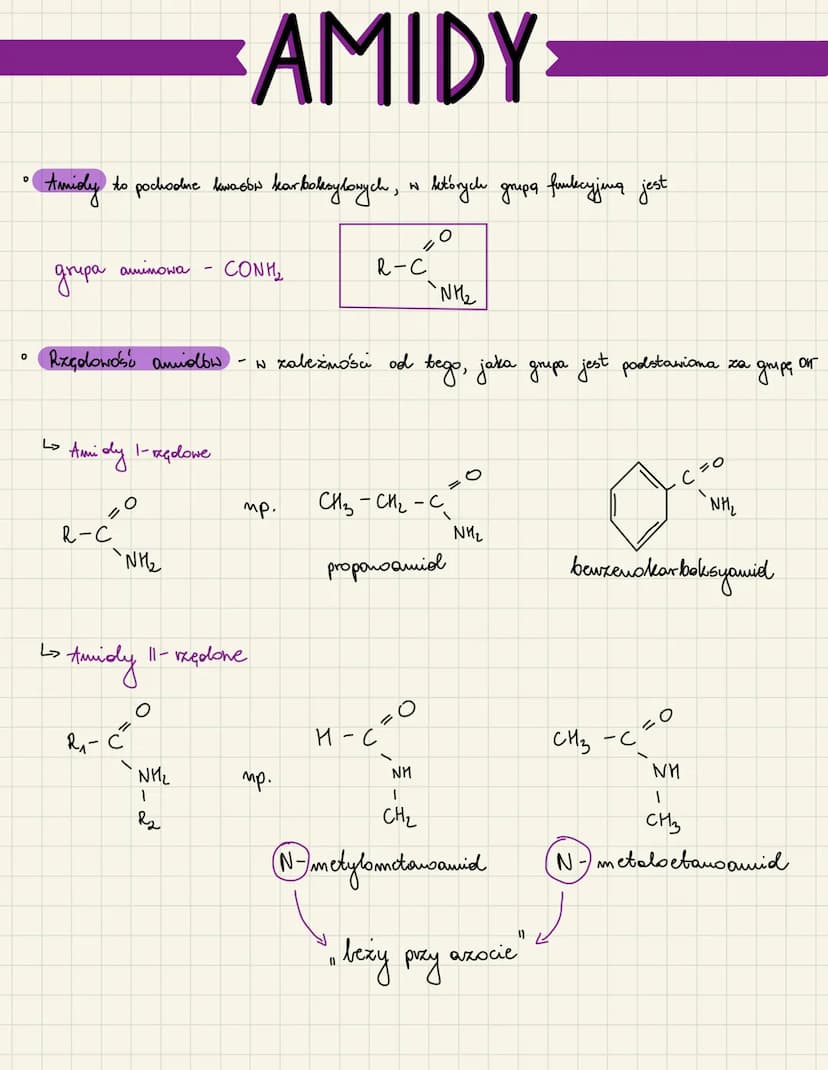 AMIDY
° Amidy to pochodne kwasów karboksylowych, w których grupą funkcyjną jest
grupa aminowa - CONH₂
R-C
=O
NH₂
° Rzędowość amidów - w zależności od tego, jaka grupa jest podstawiona za grupę OH
↳ Amidy I-rzędowe
R-C
=O
NH₂
np.
CH₃-CH₂-C
=O
NH₂
propanoamid
C=O
NH₂
benzenokarboksyamid
↳ Amidy II-rzędowe
R₁-C
=O
NH₂
R₂
np.
H-C
=O
NH
CH₂
N-metylometanoamid
CH₃-C
=O
NH
CH₃
N-metaloetanoamid
„leży przy azocie"